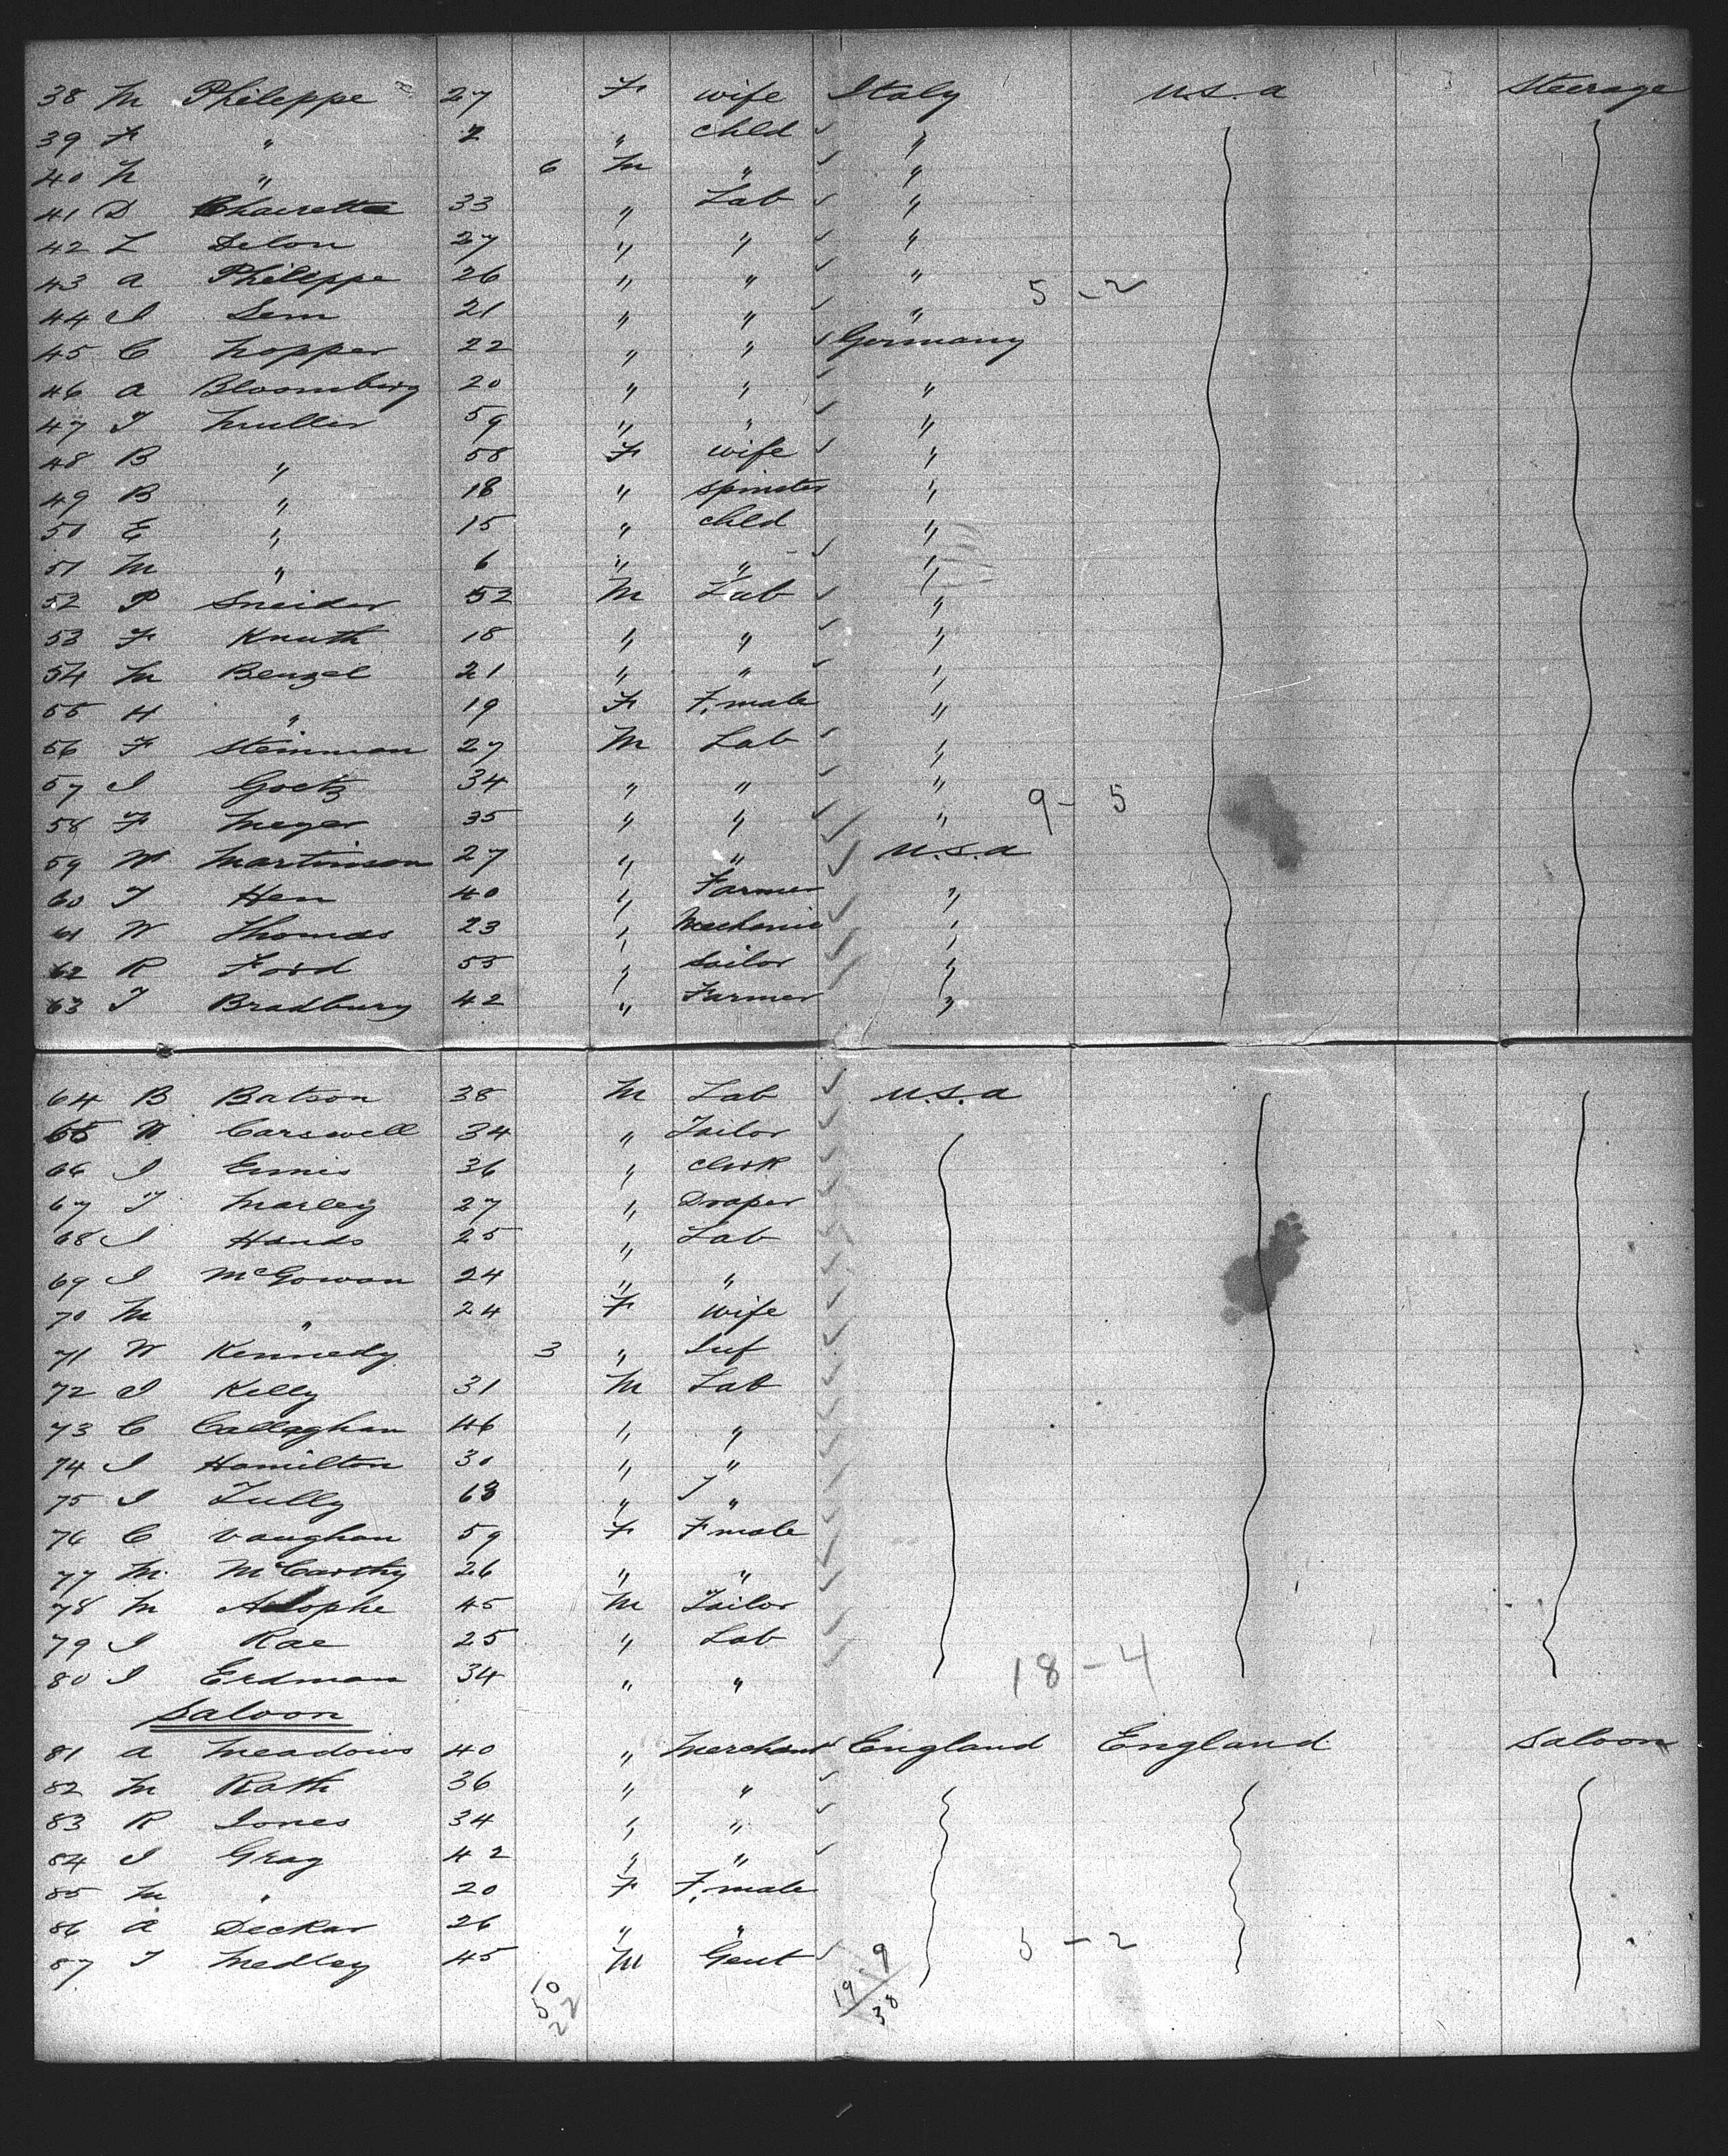 38 M Phileppe 27 F wife Italy U.S.A Steerage
39 F " 2 " Child "
40 N " 6 M " "
41 D Chairetta 33 " Lab "
42 L Delon 27 " " "
43 A Phileppe 26 " " " 5 - 2
44 I Sem 21 " " "
45 C Hopper 22 " " Germany
46 A Bloomberg 20 " " "
47 J Muller 59 " " "
48 B " 58 F wife "
49 B " 18 " Spinster "
50 E " 15 " Child "
51 M " 6 " " "
52 P Sneider 52 M Lab "
53 F Knuth 18 " " "
54 M Benzel 21 " " "
55 H " 19 F F. male "
56 F Steinman 27 M Lab "
57 I Goetz 34 " " " 9 - 5
58 F Meyer 35 " " "
59 W Martinson 27 " " U.S.A
60 T Hen 40 " Farmer "
61 W Thomas 23 " Mechanic "
62 R Ford 55 " Sailor "
63 T Bradbury 42 " Farmer "
64 B Batson 38 M Lab U.S.A
65 W Carswell 34 " Tailor
66 I Ennis 36 " Clerk
67 T Marley 27 " Draper
68 I Hands 25 " Lab
69 I McGowan 24 " "
70 M " 24 F Wife
71 W Kennedy 3 " Inf
72 I Kelly 31 M Lab
73 C Callaghan 46 " "
74 I Hamilton 30 " "
75 I Tully 63 " "
76 C Vaughan 59 F F male
77 M McCarthy 26 " "
78 M Adophe 45 M Tailor
79 I Rae 25 " Lab
80 I Erdman 34 " " 18 - 4
Saloon
81 A Meadows 40 " Merchant England England Saloon
82 M Rath 36 " "
83 R Jones 34 " "
84 I Gray 42 " "
85 M " 20 F F. male
86 A Deckar 26 " "
87 T Medley 45 M Gent 5 - 2
10
5
22
19
19
38